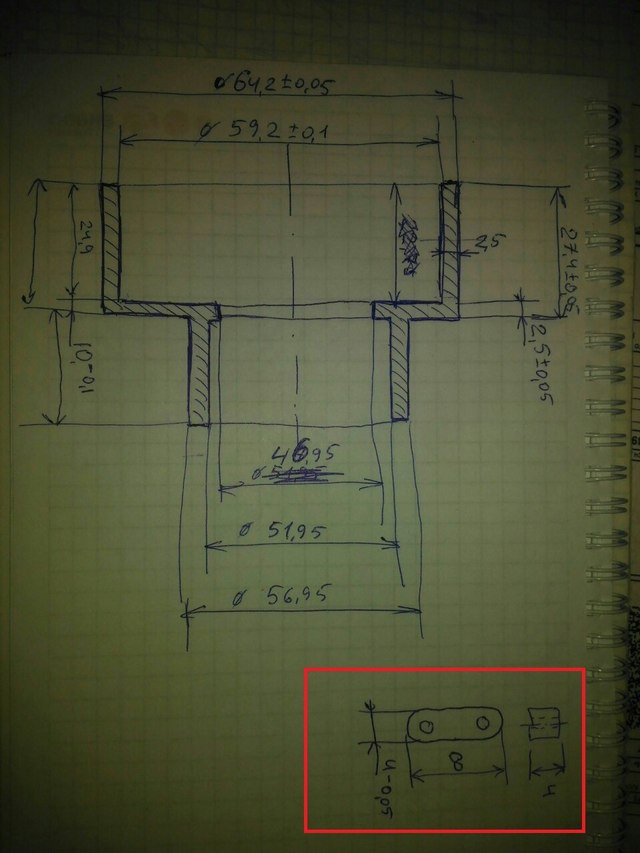 ⌀64,2±0,05
⌀ 59,2±0,1
24,9
2,5
27,4±0,05
2,5±0,05
10-0,1
46,95
⌀ 51,95
⌀ 56,95
8
4
4-0,05